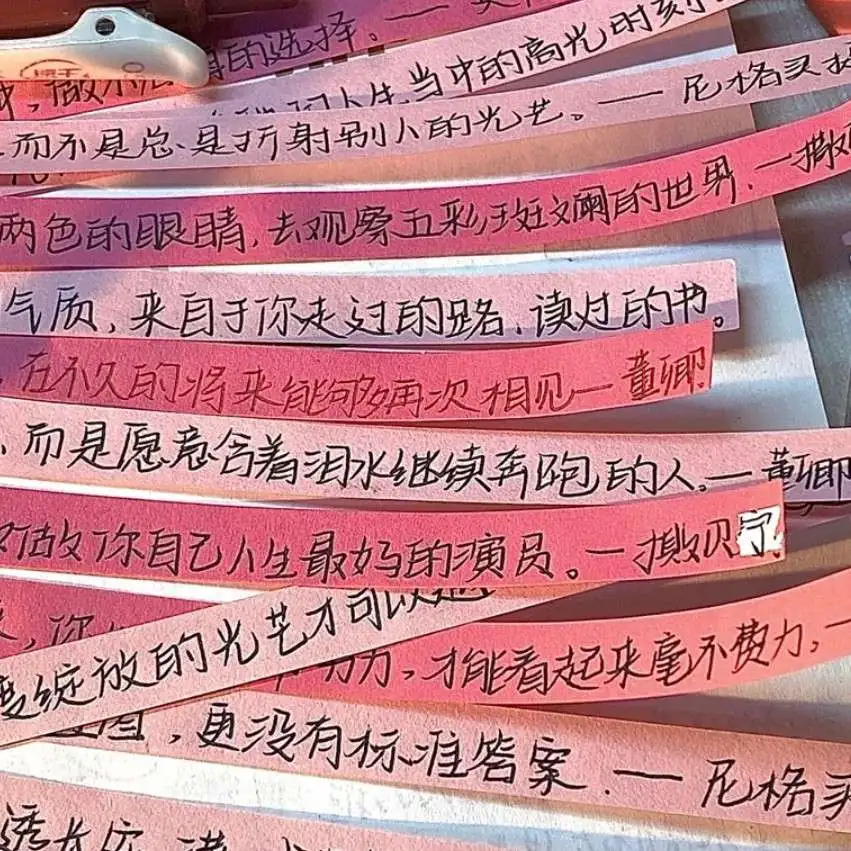 的选择。一
人生当中的高光时刻
而不是总是折射别人的光艺。一 尼格买提
两色的眼睛,去观察五彩斑斓的世界.一撒
气质,来自于你走过的路,读过的书。
,在不久的将来能够再次相见一董卿
,而是愿意含着泪水继续奔跑的人。一董卿
做你自己人生最好的演员。一撒贝宁
来,你
绽放的光艺才可以
努力,才能看起来毫不费力。一
,更没有标准答案.一尼格买